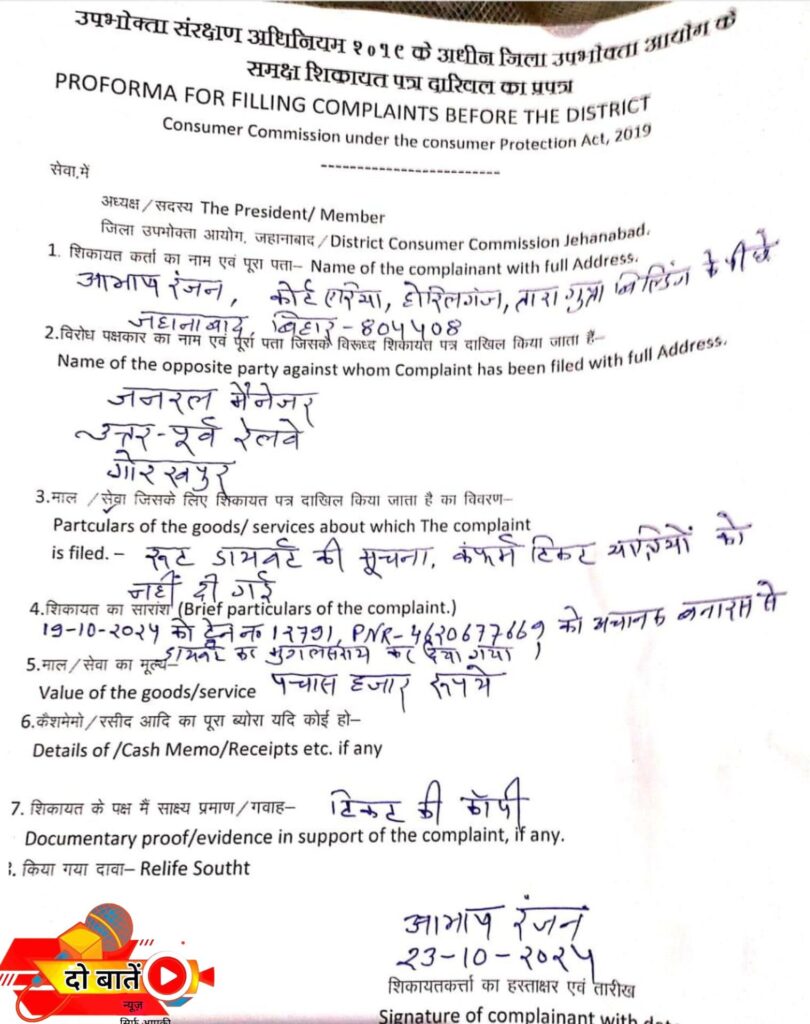 उपभोक्ता संरक्षण अधिनियम २०१९ के अधीन जिला उपभोक्ता आयोग के
समक्ष शिकायत पत्र दाखिल का प्रपत्र
PROFORMA FOR FILLING COMPLAINTS BEFORE THE DISTRICT
Consumer Commission under the consumer Protection Act, 2019
--------------------------
सेवा,में
अध्यक्ष/सदस्य The President/ Member
जिला उपभोक्ता आयोग, जहानाबाद/District Consumer Commission Jehanabad.
1. शिकायत कर्ता का नाम एवं पूरा पता– Name of the complainant with full Address.
आभाष रंजन, कोर्ट एरिया, होरिलगंज, तारा गुप्ता बिल्डिंग के पीछे
जहानाबाद, बिहार-804408
2.विरोध पक्षकार का नाम एवं पूरा पता जिसके विरूध्द शिकायत पत्र दाखिल किया जाता हैं–
Name of the opposite party against whom Complaint has been filed with full Address.
जनरल मैनेजर
उत्तर-पूर्व रेलवे
गोरखपुर
3.माल /सेवा जिसके लिए शिकायत पत्र दाखिल किया जाता है का विवरण–
Partculars of the goods/ services about which The complaint
is filed. – रूट डायवर्ट की सूचना, कंफर्म टिकट यात्रियों को
नहीं दी गई
4.शिकायत का सारांश (Brief particulars of the complaint.)
19-10-२०२५ को ट्रेन न० 12791, PNR-4620677669 को अचानक बनारस से
डायवर्ट कर मुगलसराय कर दिया गया
5.माल/सेवा का मूल्य–
Value of the goods/service पचास हजार रूपये
6.कैशमेमो/रसीद आदि का पूरा ब्योरा यदि कोई हो–
Details of /Cash Memo/Receipts etc. if any
7. शिकायत के पक्ष मैं साक्ष्य प्रमाण/गवाह– टिकट की कॉपी
Documentary proof/evidence in support of the complaint, if any.
. किया गया दावा– Relife Southt
आभाष रंजन
23-10-२०२५
शिकायतकर्त्ता का हस्ताक्षर एवं तारीख
Signature of complainant with
दो बातें
न्यूज़
सिर्फ आपकी